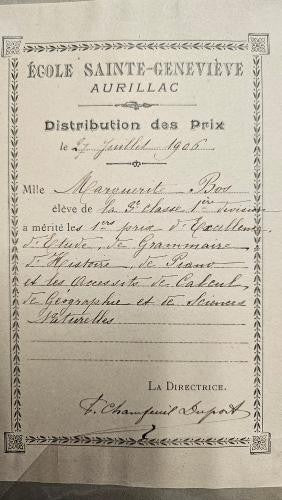 ÉCOLE SAINTE-GENEVIÈVE
AURILLAC
Distribution des Prix
le 27 Juillet 1906
Mlle Marguerite Bos
élève de la 3e classe 1ère division
a mérité les 1ers prix d'Excellence,
d'Etude, de Grammaire,
d'Histoire, de Piano
et les accessits de Calcul,
de Géographie et de Sciences
Naturelles
LA DIRECTRICE.
Dupont